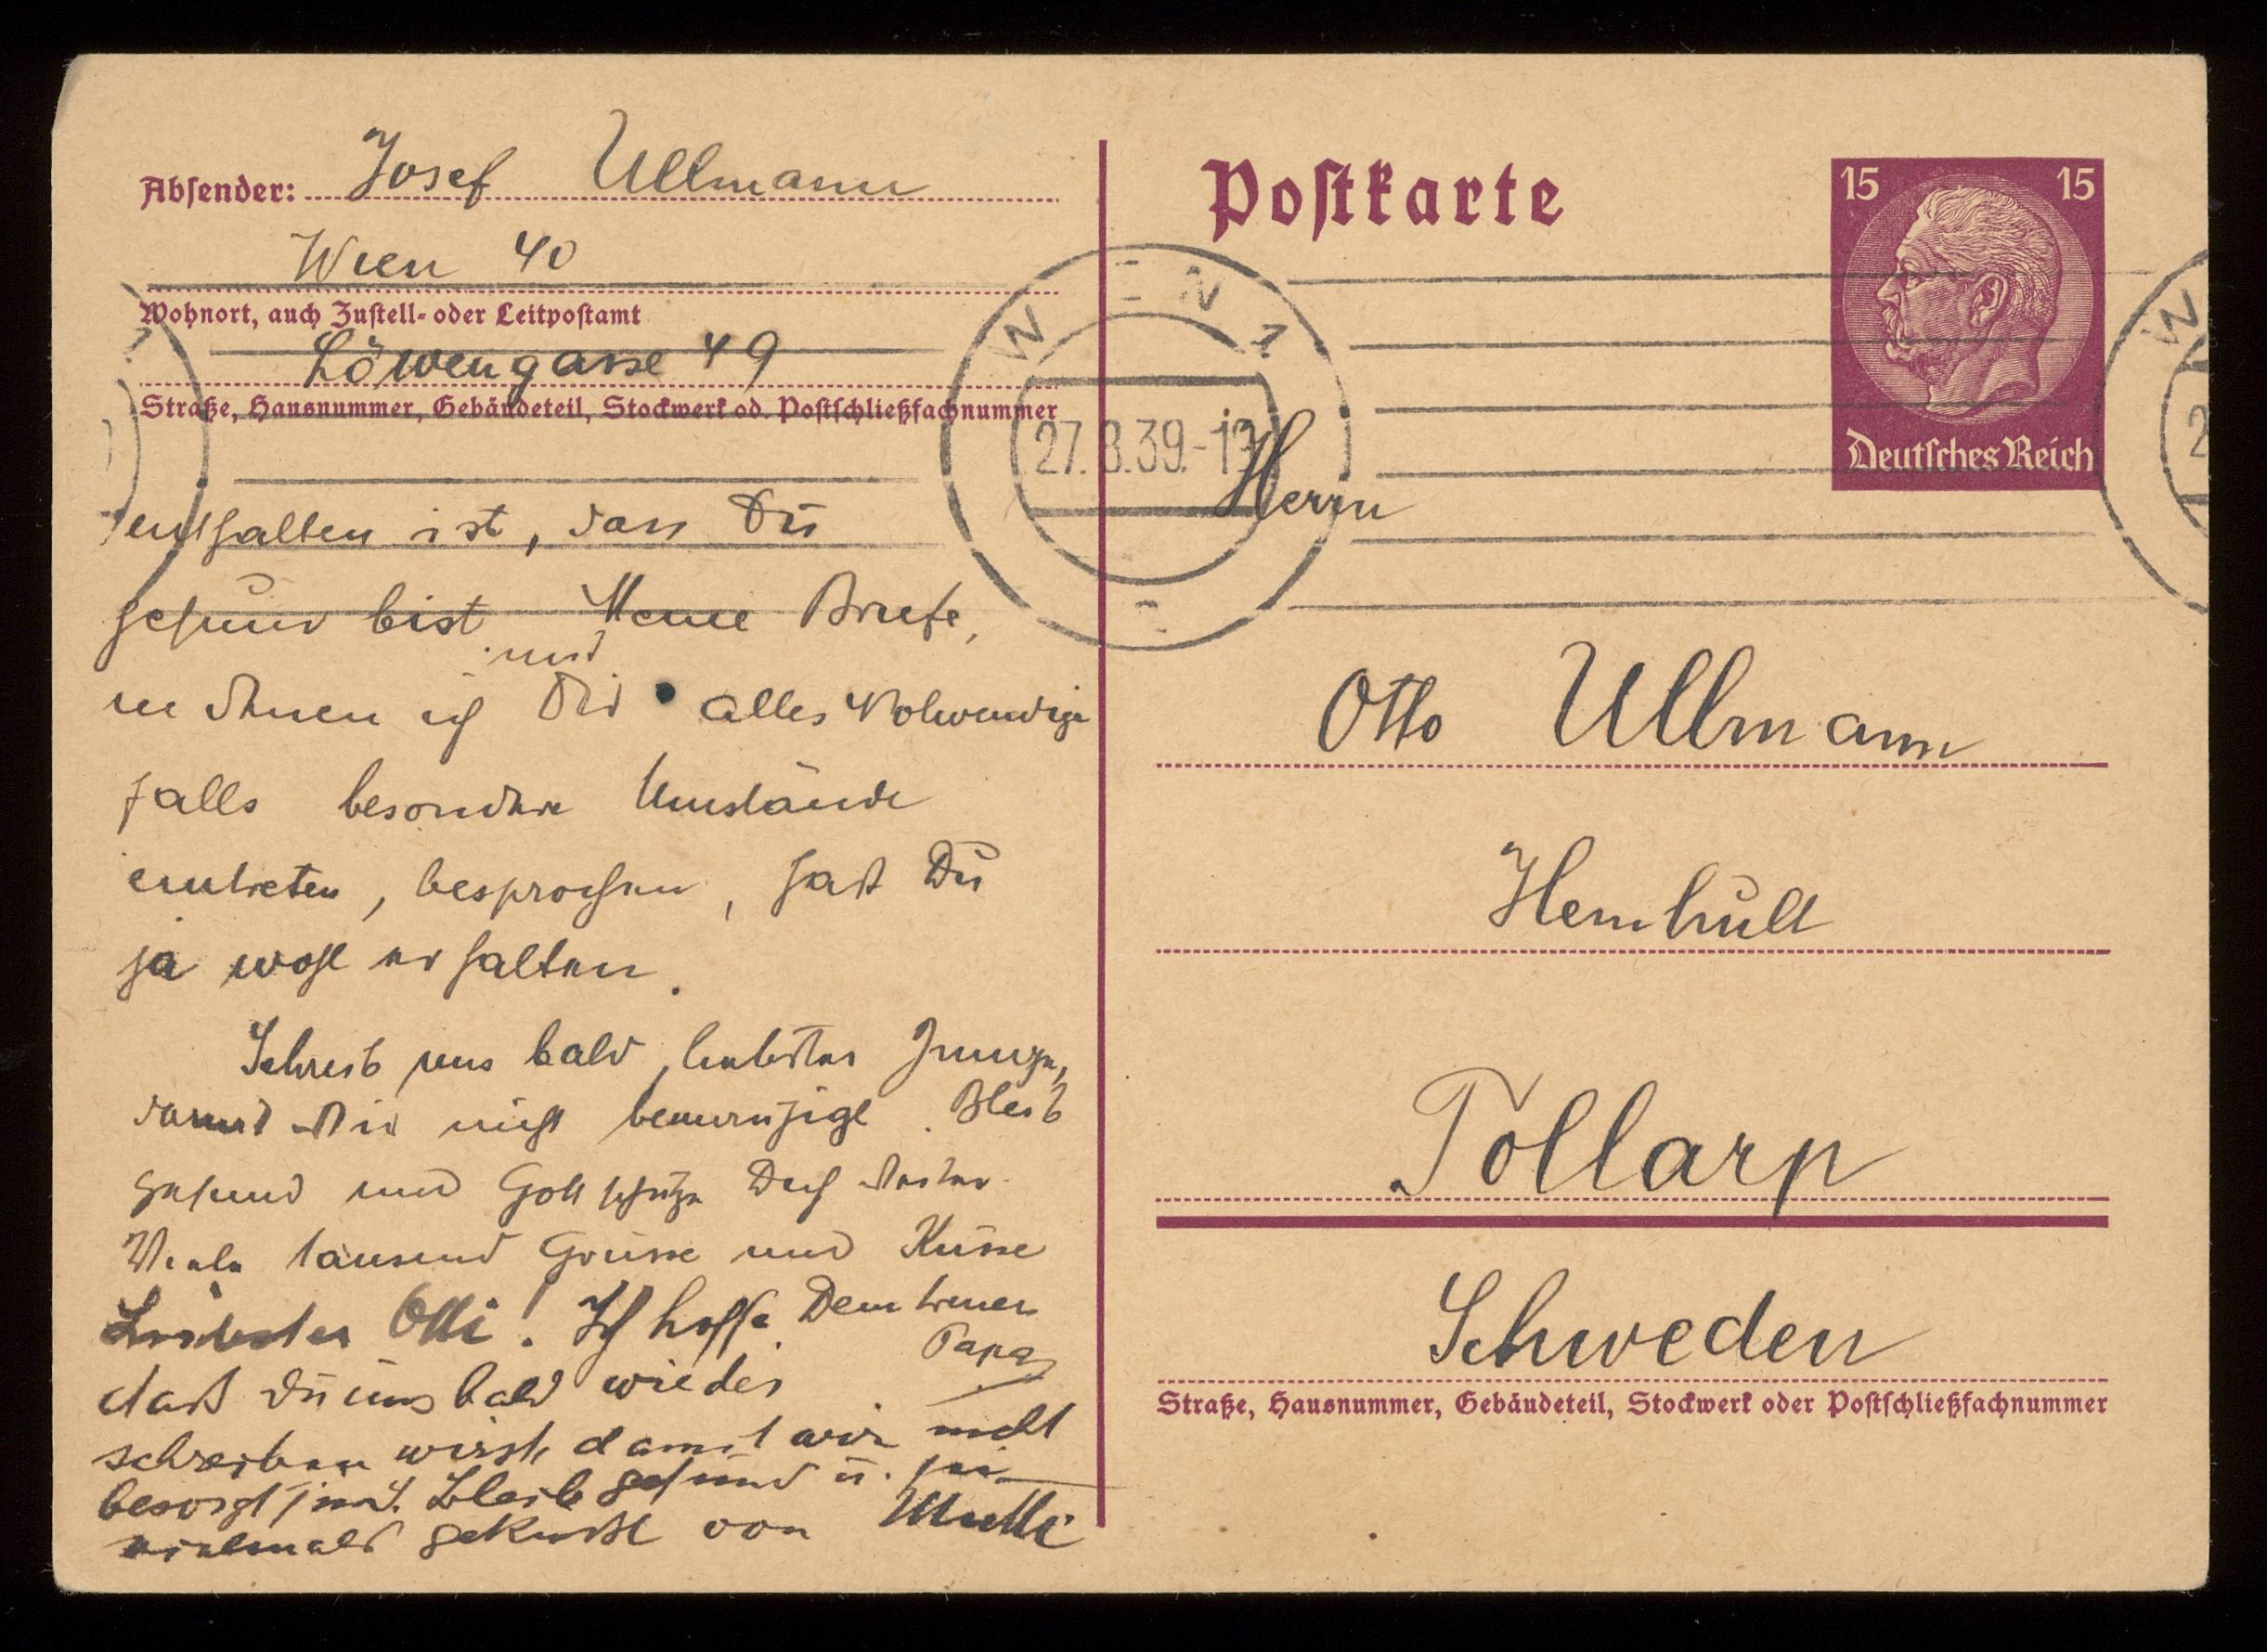 Absender: Josef Ullmann
Wien 40
Wohnort, auch Zustell- oder Leitpostamt
Löwengasse 49
Straße, Hausnummer, Gebäudeteil, Stockwerk od. Postschließfachnummer
enthalten ist, dass Du
gesund bist. Meine Briefe,
in denen ich Dir alles Notwendige
und
falls besondere Umstände
eintreten, besprochen, hast Du
ja wohl erhalten.
Schreib uns bald, liebster Junge,
damit wir nicht beunruhigt. Bleib
gesund und Gott schütze Dich weiter.
Viele tausend Grüsse und Küsse
Dein treuer
Papa
Liebster Otti! Ich hoffe
daß Du uns bald wieder
schreiben wirst, damit wir nicht
besorgt sind. Bleib gesund u. sei
vielmals geküßt von Mutti
Postkarte
15 15
Deutsches Reich
WIEN 1
27. 8.39.-13
Herrn
Otto Ullmann
Hemhult
Tollarp
Schweden
Straße, Hausnummer, Gebäudeteil, Stockwerk oder Postschließfachnummer